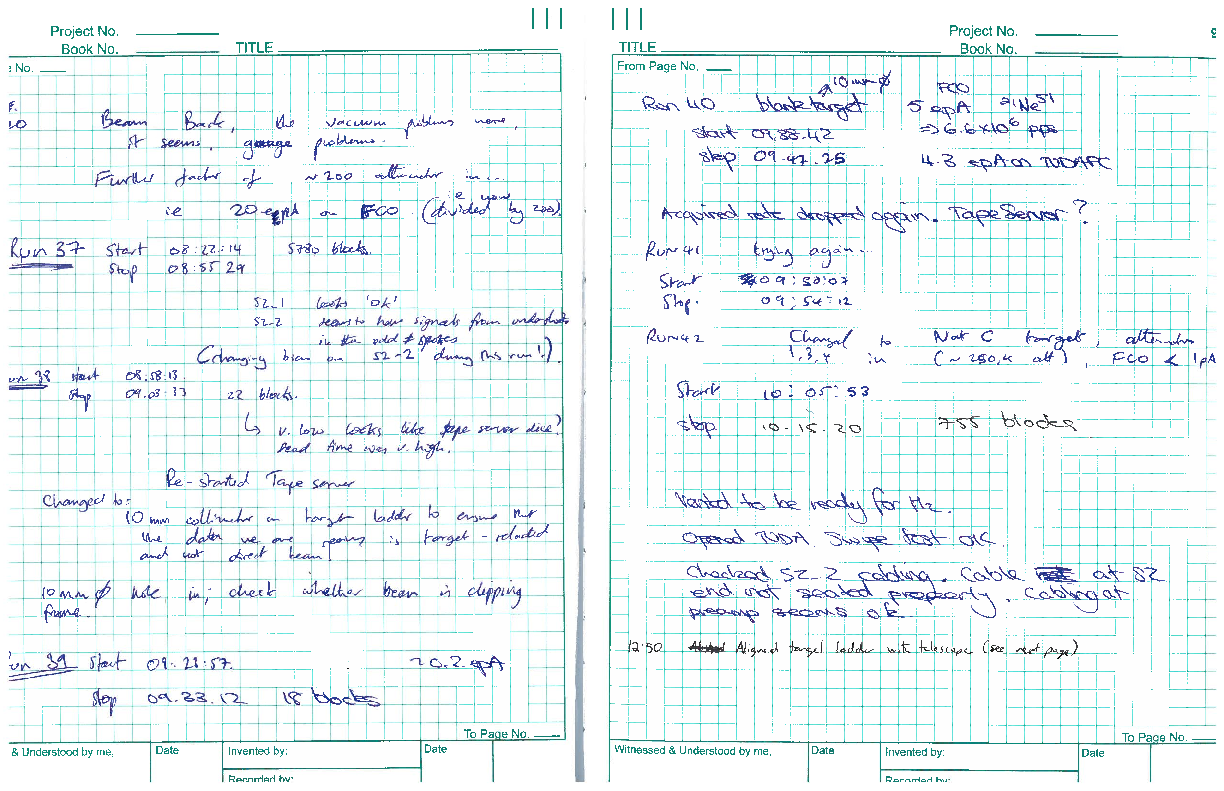 Project No.
Book No. TITLE
No.
Beam Back, the vacuum problems were,
it seems, gauge problems.
Further factor of ~200 attenuator in...
ie 20 epA on FC0 (divided by 200).
Run 37 Start 08:22:14 5780 blocks.
Stop 08:55 29
S2_1 looks 'OK'
S2-2 seems to have signals from
in the odd # spokes
(changing bias on S2-2 during this run!).
un 38 start 08:58:13
stop 09.03:33 22 blocks.
↳ v. low. Looks like tape server died?
Dead time was v. high.
Re-started Tape server
Changed to:
10 mm collimator on target ladder to ensure that
the data we are seeing is target-related
and not direct beam.
10 mm ϕ hole in; check whether beam is clipping
frame.
un 39 Start 09.21:57. ~0.2 epA
Stop 09.33.12 18 blocks
To Page No.
& Understood by me, Date Invented by: Date
Recorded by:
Project No.
TITLE Book No.
From Page No.
10 mm ϕ
Run 40 blank target FC0
5 epA 21Ne5+
start 09.38.42 => 6.6×10⁶ pps
stop 09.47.25 4.3 epA on TUDAFC
Acquired rate dropped again. Tape Server?
Run 41 trying again...
Start 09:50:07
Stop. 09:54:12
RUN 42 Changed to Nat C target, attenuators
1,3,4 in (~250,k att), FC0 < 1pA
Start 10:05:53
stop 10.15.20 755 blocks
Vented to be ready for H2.
Opened TUDA. Swipe test OK
Checked S2-2 cabling. Cable at S2
end not seated properly. Cabling at
preamp seems ok.
12:50 Aligned target ladder with telescope (see next page)
To Page No.
Witnessed & Understood by me, Date Invented by: Date
Recorded by: